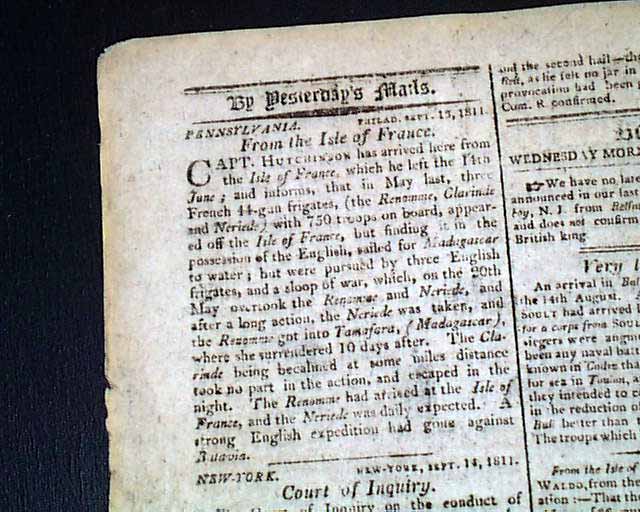 By Yesterday's Mails.
PENNSYLVANIA. PHILAD. SEPT. 13, 1811.
From the Isle of France.
CAPT. HUTCHINSON has arrived here from
the Isle of France, which he left the 14th
June; and informs, that in May last, three
French 44-gun frigates, (the Renomme, Clarinde
and Neriede) with 750 troops on board, appear-
ed off the Isle of France, but finding it in the
possession of the English, sailed for Madagascar
to water; but were pursued by three English
frigates, and a sloop of war, which, on the 20th
May overtook the Renomme and Neriede, and
after a long action, the Neriede was taken, and
the Renomme got into Tamafara, (Madagascar),
where she surrendered 10 days after. The Cla-
rinde being becalmed at some miles distance
took no part in the action, and escaped in the
night. The Renomme had arrived at the Isle of
France, and the Neriede was daily expected. A
strong English expedition had gone against
Batavia.
NEW-YORK. NEW-YORK, SEPT. 14, 1811.
Court of Inquiry.
Court of Inquiry on the conduct of
and the second hail—
as he felt no jar in
provocation had been
Com. R confirmed.
WEDNESDAY MORN
We have no late
announced in our last
boy, N. J. from
and does not confirm
British king
Very l
An arrival in
the 14th August.
SOULT had arrived
for a corps from
siegers were
been any naval
known in Cadiz that
for sea in Toulon,
they intended to
in the reduction of
better than
The troops which
From the Isle of
WALDO, from the
ation:—That the